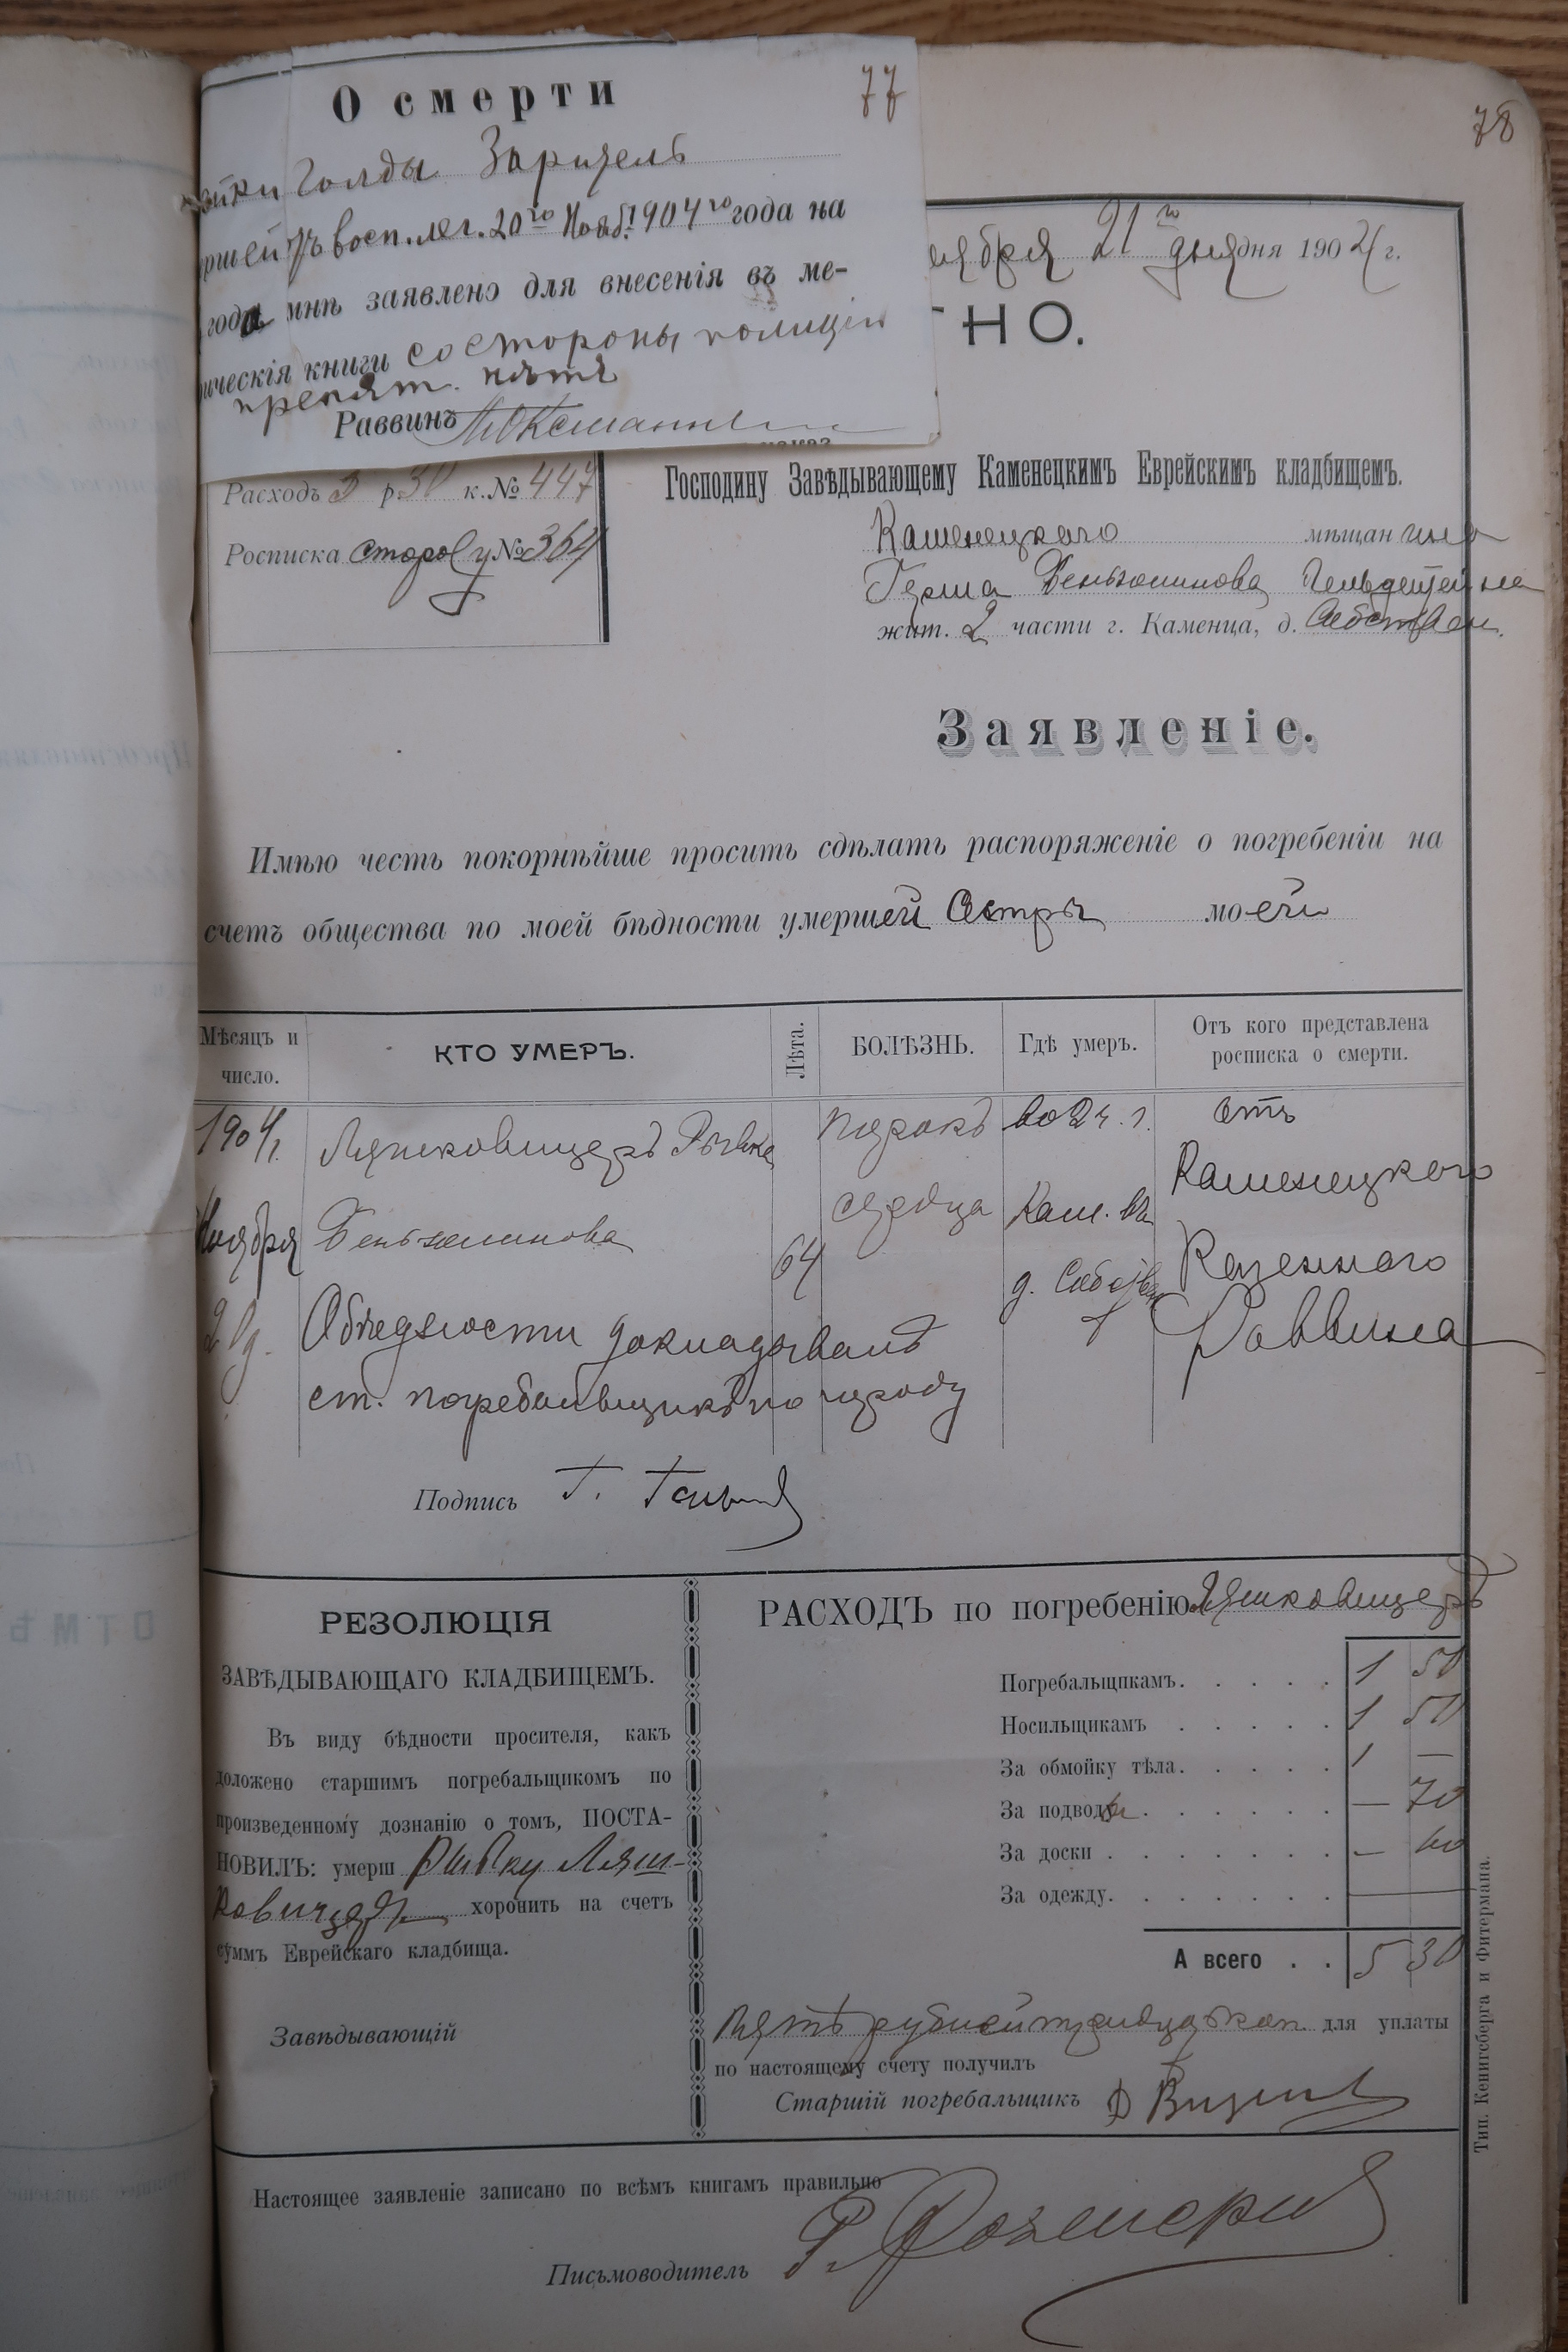 О смерти
77
78
Голды Заритель
восп. лег. 20го Нояб. 1904го года на
года мнѣ заявлено для внесенія въ ме-
рическія книги со стороны полиціи
препят. нѣтъ
Раввинъ
ября 21го дня дня 1904 г.
ТНО.
Расходъ 5 р. 30 к. № 447
Росписка № 364
Господину Завѣдывающему Каменецкимъ Еврейскимъ кладбищемъ.
Каменецкаго мѣщанина
Герша Беньюминова Гельдштейна
жит. 2 части г. Каменца, д. Собствен.
Заявленіе.
Имѣю честь покорнѣйше просить сдѣлать распоряженіе о погребеніи на
счетъ общества по моей бѣдности умершей Сестры моей
Мѣсяцъ и число.
КТО УМЕРЪ.
Лѣта.
БОЛѢЗНЬ.
Гдѣ умеръ.
Отъ кого представлена росписка о смерти.
1904 г. Ляшковицеръ Рывка порокъ во 2 ч. г. отъ
Каменецкаго
Ноября Беньюминова 64 сердца Кам. въ
20 д. д. Собствен Казеннаго
Раввина
О бѣдности докладывалъ
ст. погребальщикъ по уходу
Подпись Г.
РЕЗОЛЮЦІЯ
ЗАВѢДЫВАЮЩАГО КЛАДБИЩЕМЪ.
Въ виду бѣдности просителя, какъ
доложено старшимъ погребальщикомъ по
произведенному дознанію о томъ, ПОСТА-
НОВИЛЪ: умерш Рывку Ляш-
ковицеръ хоронить на счетъ
суммъ Еврейскаго кладбища.
Завѣдывающій
РАСХОДЪ по погребенію Ляшковицеръ
Погребальщикамъ. . . . . 1 50
Носильщикамъ . . . . . 1 50
За обмойку тѣла. . . . . 1 —
За подводы . . . . . . — 70
За доски . . . . . . . — 60
За одежду. . . . . . .
А всего . . 5 30
Пять рублей тридцать коп. для уплаты
по настоящему счету получилъ
Старшій погребальщикъ
Настоящее заявленіе записано по всѣмъ книгамъ правильно
Письмоводитель
Тип. Кенигсберга и Фитермана.